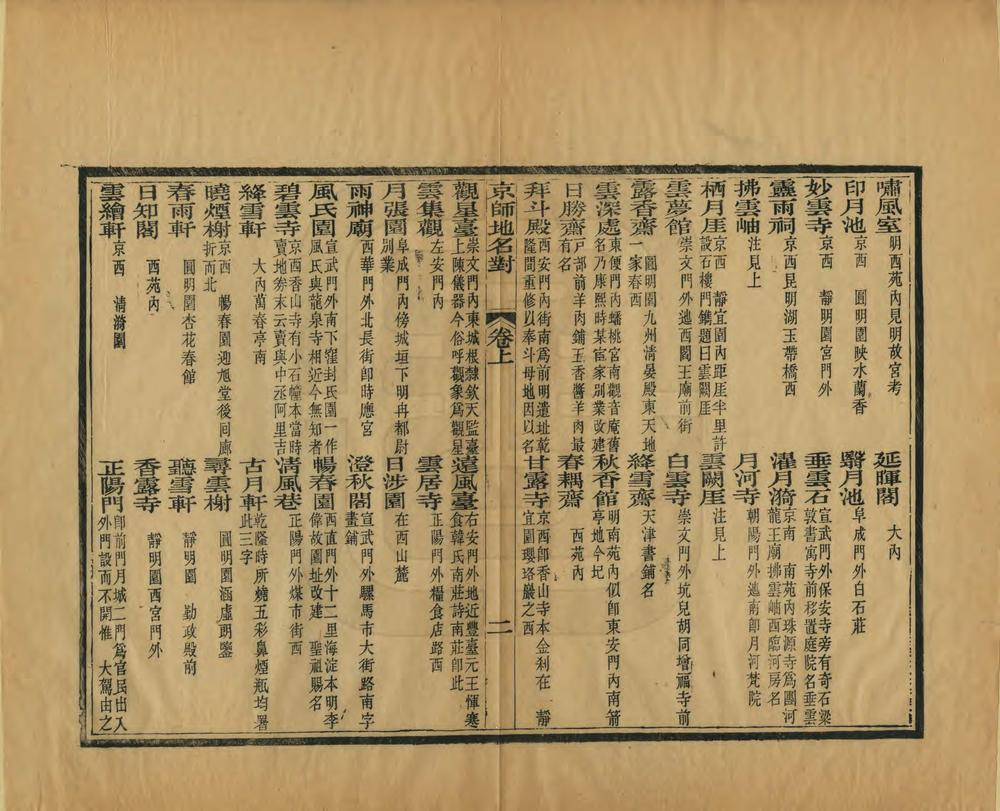 嘯風室 明西苑內見明故宮考 延暉閣 大內
印月池 京西 圓明園映水蘭香 翳月池 阜成門外白石莊
妙雲寺 京西 靜明園宮門外 垂雲石 宣武門外保安寺旁有奇石粱敦書寓寺前移置庭院名垂雲
靈雨祠 京西昆明湖玉帶橋西 濯月漪 京南 南苑內珠源寺爲團河龍王廟拂雲岫西臨河房名
拂雲岫 注見上 月河寺 朝陽門外迤南卽月河梵院
栖月厓 京西 靜宜園內距厓半里許設石樓門鐫題曰雲闕厓 雲闕厓 注見上
雲夢館 崇文門外迤西閻王廟前街 白雲寺 崇文門外坑兒胡同增福寺前
露香齋 圓明園九州清晏殿東天地一家春西 絳雪齋 天津書鋪名
雲深處 東便門內蟠桃宮南觀音庵舊名乃康熙時某宦家別業改建 秋香館 明南苑內似卽東安門內南箭亭地今圮
日勝齋 戸部前羊肉鋪玉香醬羊肉最有名 春耦齋 西苑內
拜斗殿 西安門內街南爲前明遺址乾隆間重修以奉斗母地因以名 甘露寺 京西卽香山寺本金刹在 靜宜園瓔珞巖之西
京師地名對 卷上 二
觀星臺 崇文門內東城根隸欽天監臺上陳儀器今俗呼觀象爲觀星 遠風臺 右安門外地近豐臺元王惲寒食韓氏南莊詩南莊卽此
雲集觀 左安門內 雲居寺 正陽門外糧食店路西
月張園 阜成門內傍城垣下明冉都尉別業 日涉園 在西山麓
雨神廟 西華門外北長街卽時應宮 澄秋閣 宣武門外騾馬市大街路南字畫鋪
風氏園 宣武門外南下窪封氏園一作風氏與龍泉寺相近今無知者 暢春園 西直門外十二里海淀本明李偉故園址改建 聖祖賜名
碧雲寺 京西香山寺有小石幢本當時賣地券末云賣與中丞阿里吉 淸風巷 正陽門外煤市街西
絳雪軒 大內萬春亭南 古月軒 乾隆時所燒五彩鼻煙瓶均署此三字
曉煙榭 京西 暢春園迎旭堂後回廊折而北 尋雲榭 圓明園涵虛朗鑒
春雨軒 圓明園杏花春館 聽雪軒 靜明園 勤政殿前
日知閣 西苑內 香露寺 靜明園西宮門外
雲繪軒 京西 淸漪園 正陽門 卽前門月城二門爲官民出入外門設而不開惟 大駕由之